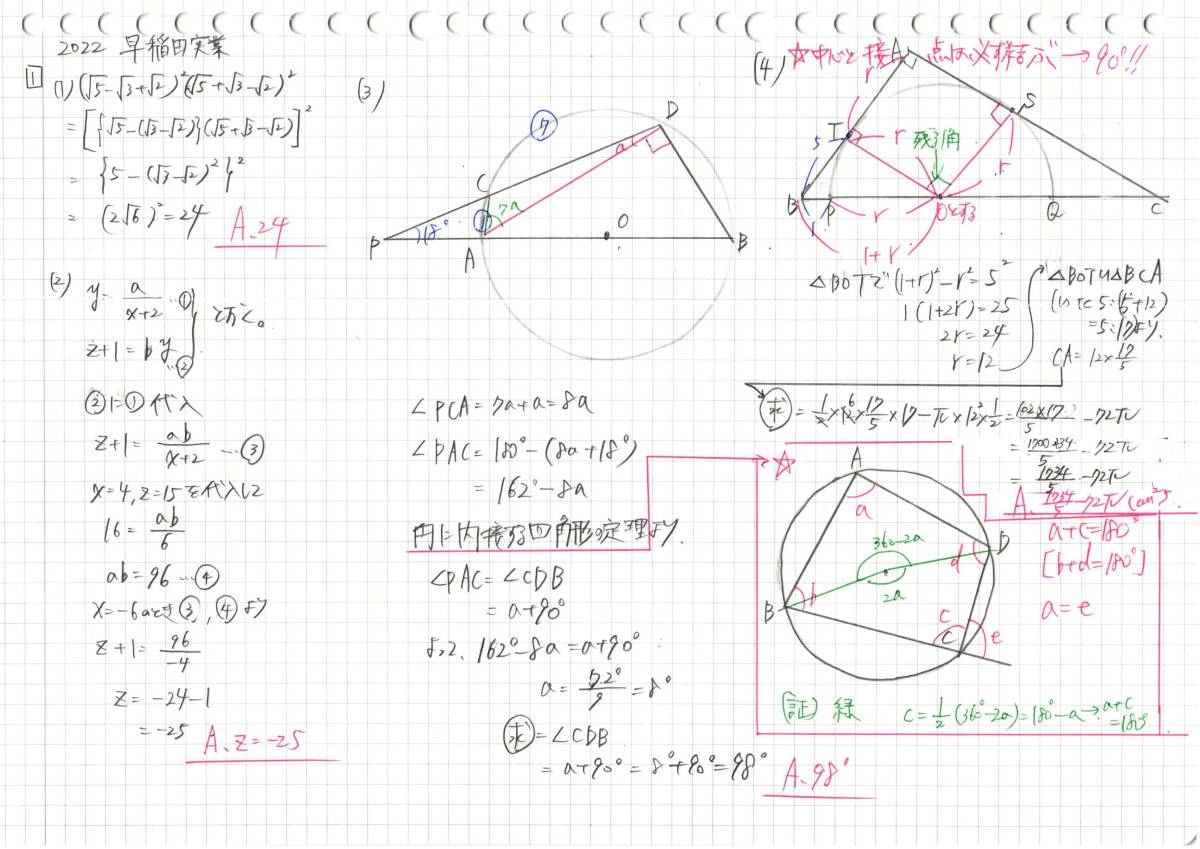 2022 早稲田実業
1
(1) (√5-√3+√2)²(√5+√3-√2)²
= [{√5-(√3-√2)}{√5+√3-√2}]²
= {5-(√3-√2)²}²
= (2√6)² = 24
A. 24
(2)
y = a/(x+2) …①
z+1 = by …②
とおく。
②に①代入
z+1 = ab/(x+2) …③
x=4, z=15を代入して
16 = ab/6
ab=96 …④
x=-6のとき③, ④より
z+1 = 96/-4
z = -24-1
= -25
A. z=-25
(3)
7
D
a
C
1
7a
18°
P
A
O
B
∠PCA = 7a+a = 8a
∠PAC = 180°-(8a+18°)
= 162°-8a
円に内接する四角形の定理より
∠PAC = ∠CDB
= a+90°
よって、162°-8a = a+90°
a = 72°/9 = 8°
求 = ∠CDB
= a+90° = 8°+90° = 98°
A. 98°
(4)
☆中心と接点は必ず結ぶ→90°!!
A
r
S
5
r
残り角
r
B
P
r
Oとする
Q
C
1
1+r
△BOTで (1+r)²-r² = 5²
1(1+2r) = 25
2r = 24
r = 12
△BOT∽△BCA
=5:17より
CA = 12×17/5
求 = 1/2×12×17/5×17-π×12²×1/2 = 102×17/5-72π
6
= 1700+34/5-72π
= 1734/5-72π
A. 1734/5-72π (cm²)
☆
A
a
360-2a
D
d
2a
B
b
c
C
e
a+c=180°
[b+d=180°]
a=e
(証) 緑
c = 1/2(360°-2a) = 180°-a → a+c
=180°